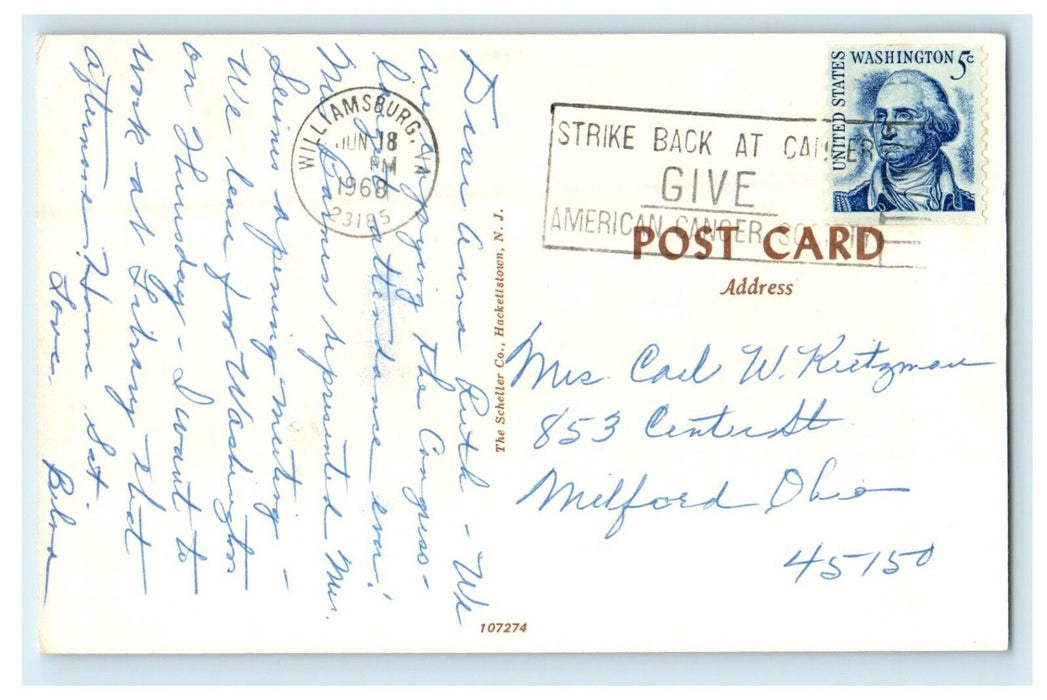 Dear Anna Ruth - We
are enjoying the Congress -
largest attendance ever!
Mrs. represented Mrs.
opening meeting -
We leave for Washington
on Thursday - I want to
work at Library that
afternoon. Home Sat.
Love.
WILLIAMSBURG, VA
JUN 18
PM
1968
23185
STRIKE BACK AT CANCER
GIVE
AMERICAN CANCER SOCIETY
UNITED STATES
WASHINGTON 5c
The Scheller Co., Hackettstown, N. J.
POST CARD
Address
Mrs. Carl W. Kietzman
853 Center St
Milford Ohio
45150
107274